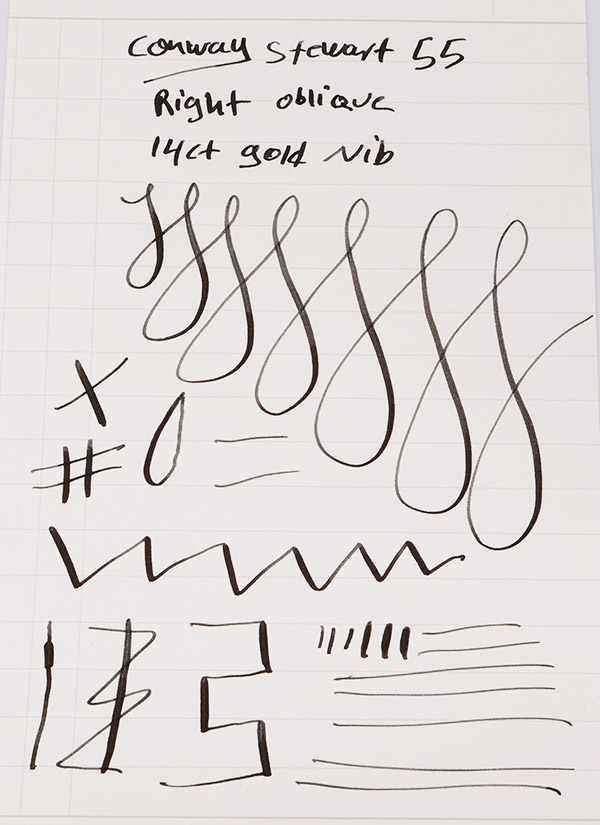 Conway Stewart 55
Right oblique
14ct gold Nib